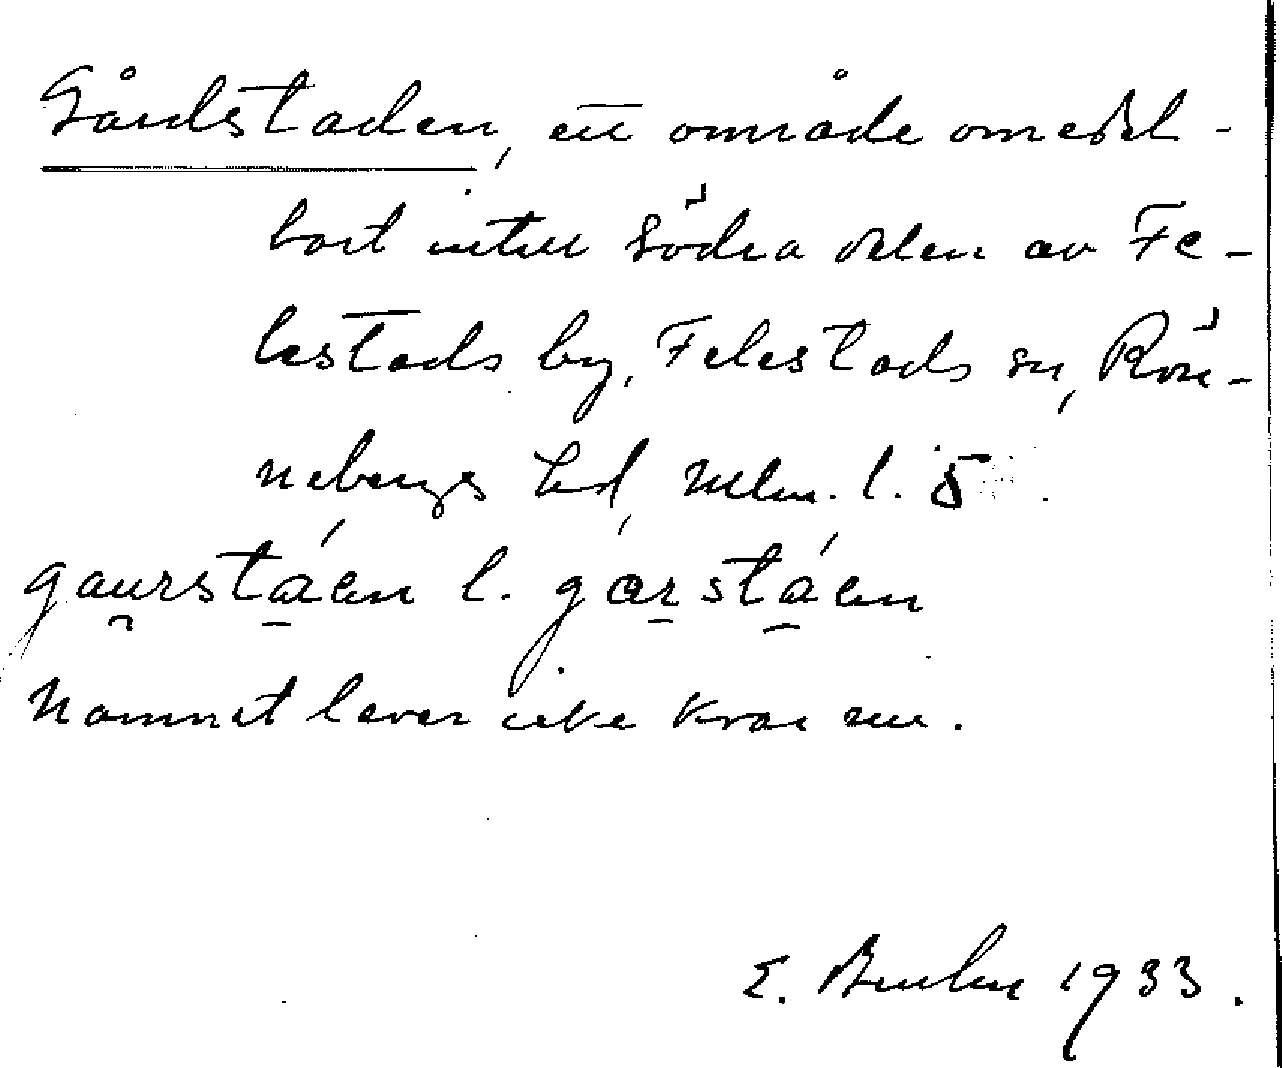 Gårdstaden, ett område omedel-
bart intill södra delen av Fe-
lestads by, Felestads sn, Rön-
nebergs hd, Mlm. l. 5
gaurstáen l. garstáen
Namnet lever icke kvar nu.
E. Bruhn 1933.